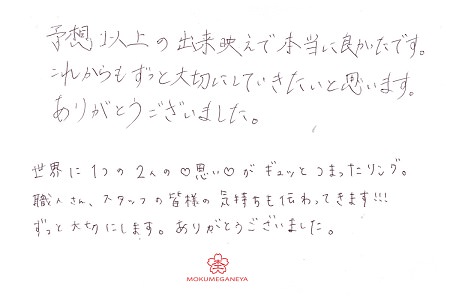 予想以上の出来映えで本当に良かったです。
これからもずっと大切にしていきたいと思います。
ありがとうございました。
世界に1つの2人の♡思い♡がギュッとつまったリング。
職人さん、スタッフの皆様の気持ちも伝わってきます!!!
ずっと大切にします。ありがとうございました。
MOKUMEGANEYA